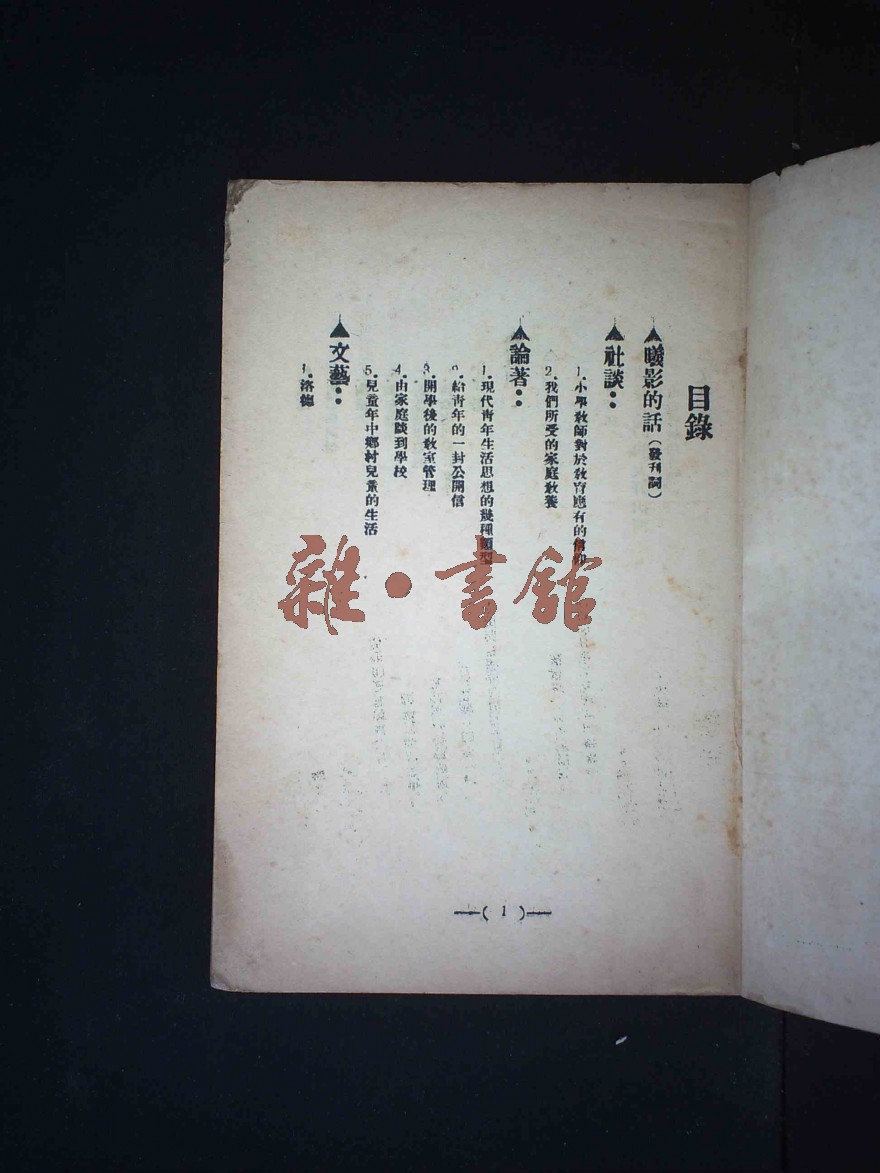 目錄
▲曦影的話（發刊詞）
▲社談：
1.小學教師對於教育應有的信仰
2.我們所受的家庭教養
▲論著：
1.現代青年生活思想的幾種類型
2.給青年的一封公開信
3.開學後的教室管理
4.由家庭談到學校
5.兒童年中鄉村兒童的生活
▲文藝：
1.洛德
雜·書館
—( 1 )—